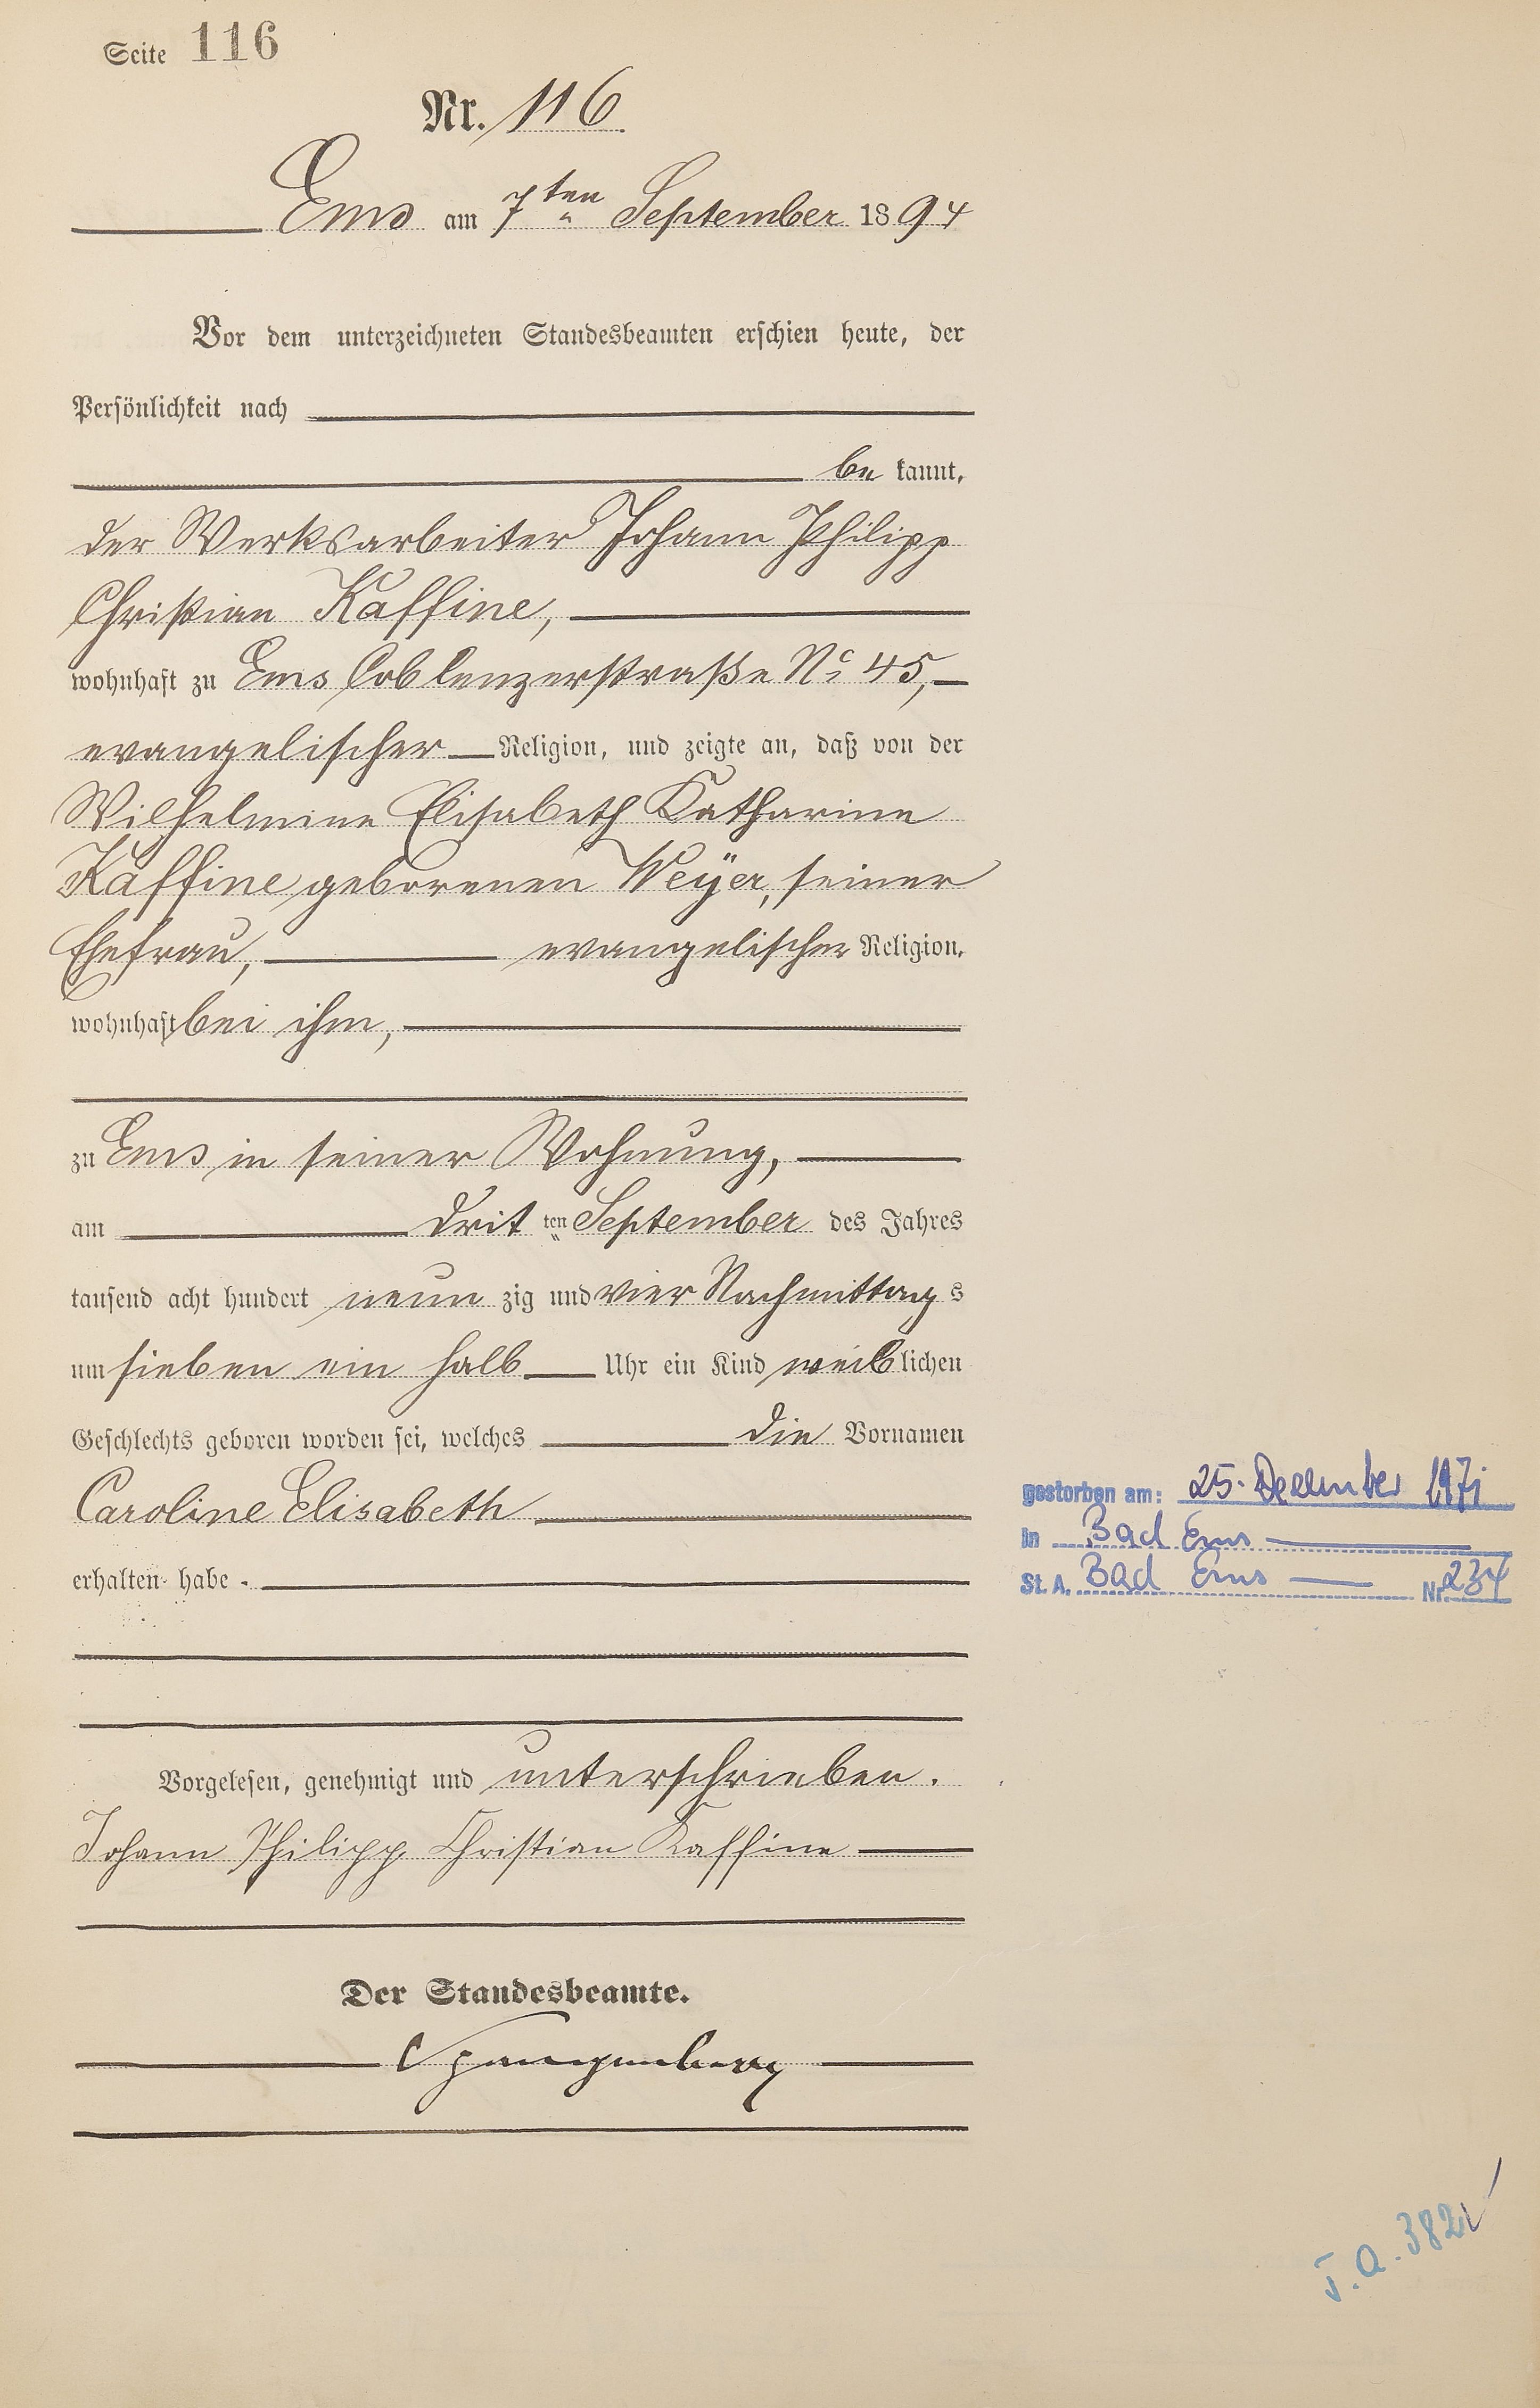 Seite 116
Nr. 116
Ems am 7ten September 1894
Vor dem unterzeichneten Standesbeamten erschien heute, der
Persönlichkeit nach
be kannt,
der Werksarbeiter Johann Philipp
Christian Kaffine,
wohnhaft zu Ems Coblenzerstraße No 45,
evangelischer Religion, und zeigte an, daß von der
Wilhelmine Elisabeth Katharine
Kaffine geborenen Weÿer, seiner
Ehefrau, evangelischer Religion,
wohnhaft bei ihm,
zu Ems in seiner Wohnung,
am drit ten September des Jahres
tausend acht hundert neun zig und vier Nachmittag s
um sieben ein halb Uhr ein Kind weib lichen
Geschlechts geboren worden sei, welches die Vornamen
Caroline Elisabeth
erhalten habe.
Vorgelesen, genehmigt und unterschrieben.
Johann Philipp Christian Kaffine
Der Standesbeamte.
Spangenberg
gestorben am: 25. Dezember 1971
in Bad Ems
St. A. Bad Ems Nr. 234